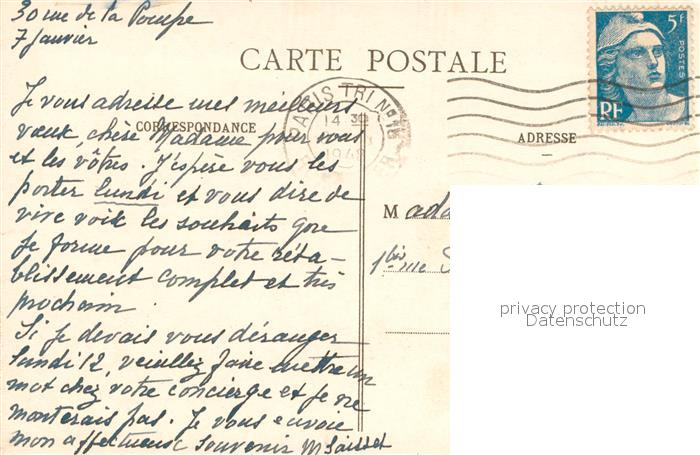 30 rue de la Pompe
7 Janvier
CARTE POSTALE
5F
POSTES
RF
PARIS TRI No
14 30
CORRESPONDANCE
ADRESSE
Je vous adresse mes meilleurs
vœux, chère Madame pour vous
et les vôtres. J'espère vous les
porter lundi et vous dire de
vive voix les souhaits que
je forme pour votre réta-
blissement complet et très
prochain.
Si je devais vous déranger
lundi 12, veuillez faire mettre un
mot chez votre concierge et je ne
monterais pas. Je vous envoie
mon affectueux souvenir
Mada
1 bis rue
privacy protection
Datenschutz